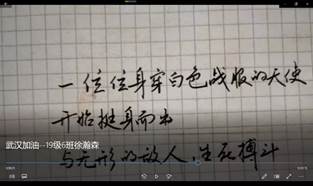 一位位身穿白色战服的天使
开始挺身而出
武汉加油--19级6班徐瀚森
与无形的敌人,生死搏斗